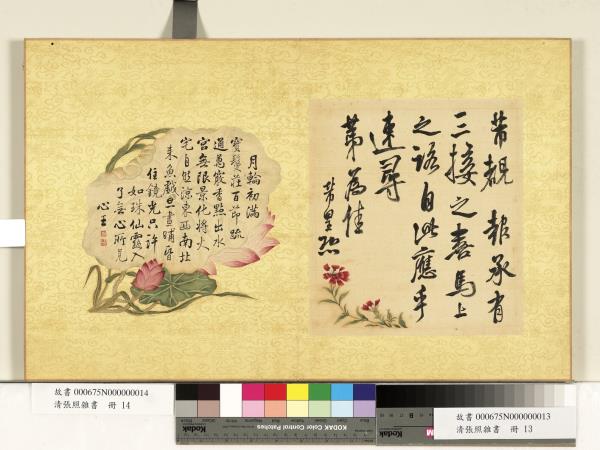 芾覩 報承有
三接之喜馬上
之諾自此應乎
速尋
第為佳
芾皇恐
月輪初滿
寶鬘莊百節疏
通萬竅香點出水
宮無限景化將火
宅自然涼東西南北
來魚戲旦晝晡昏
任鏡光只許
如珠仙露入
了無心所見
心王
故書 000675N000000014
清張照雜書 冊 14
故書 000675N000000013
清張照雜書 冊 13
Kodak Color Control Patches
Kodak